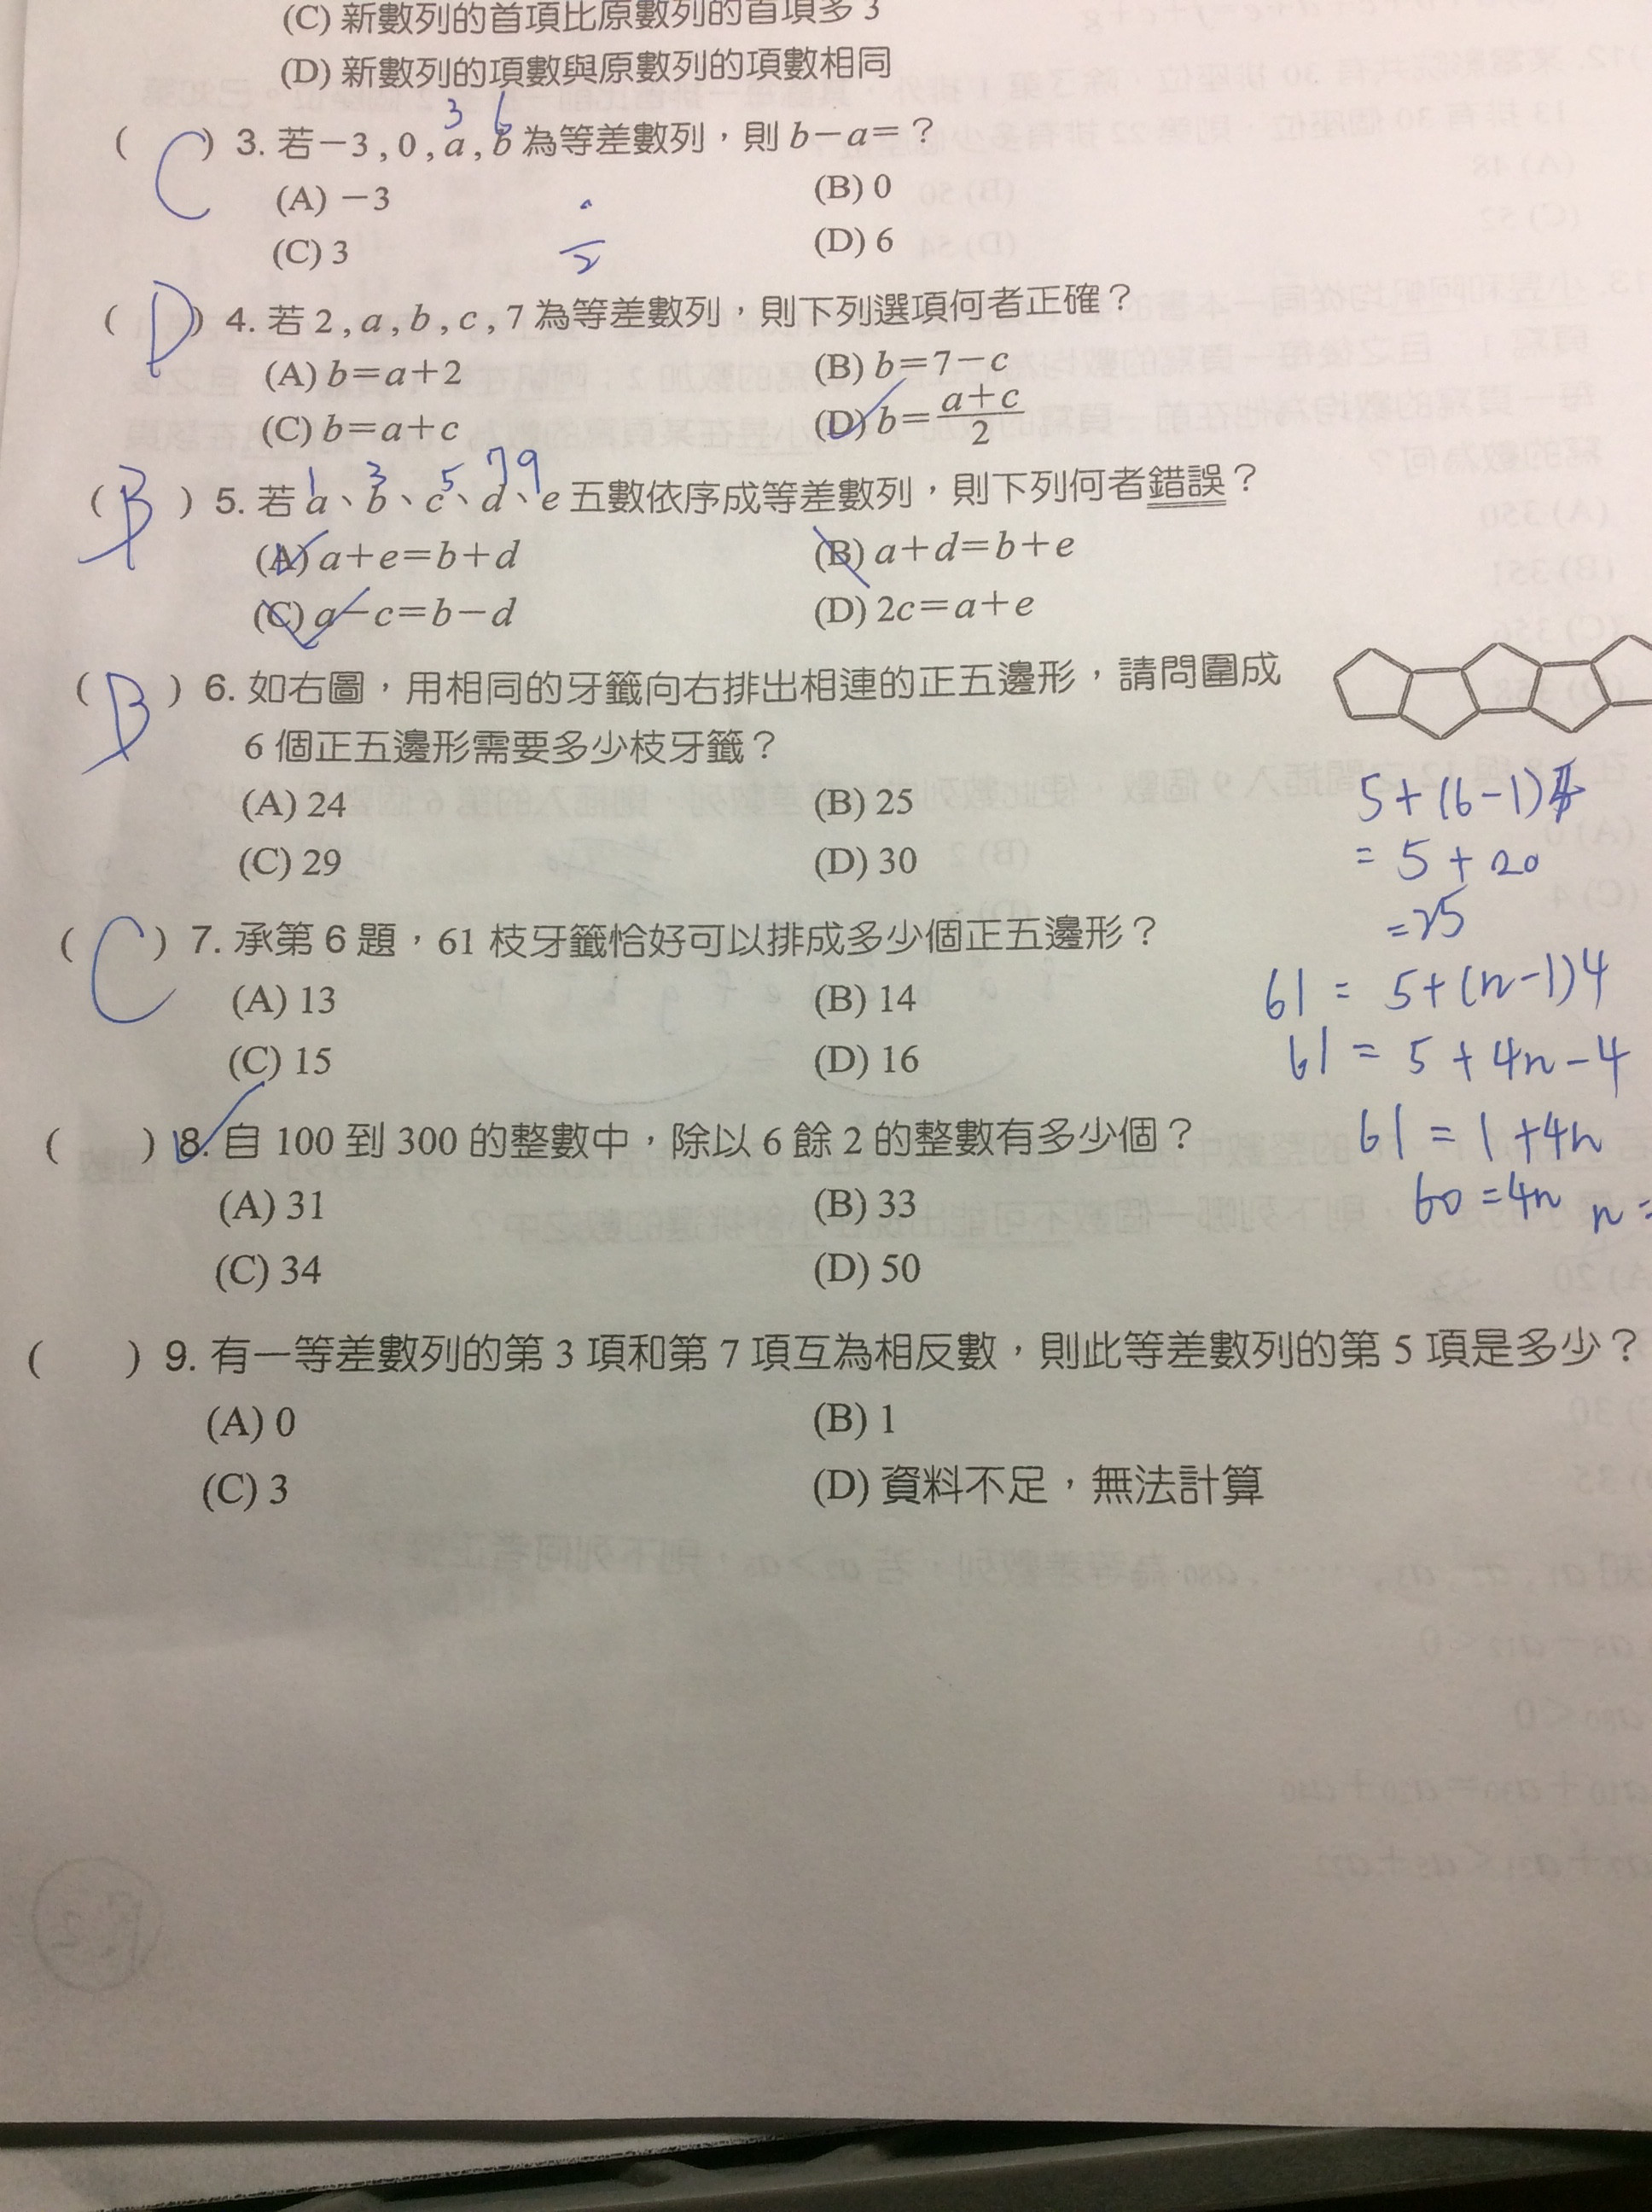 (C) 新數列的首項比原數列的首項多 3
(D) 新數列的項數與原數列的項數相同
3 6
( C ) 3. 若－3 , 0 , a , b 為等差數列，則 b－a＝？
(A) －3 (B) 0
(C) 3 (D) 6
( D ) 4. 若 2 , a , b , c , 7 為等差數列，則下列選項何者正確？
(A) b＝a＋2 (B) b＝7－c
(C) b＝a＋c (D) b＝(a＋c)/2
1 3 5 7 9
( B ) 5. 若 a、b、c、d、e 五數依序成等差數列，則下列何者錯誤？
(A) a＋e＝b＋d (B) a＋d＝b＋e
(C) a－c＝b－d (D) 2c＝a＋e
( B ) 6. 如右圖，用相同的牙籤向右排出相連的正五邊形，請問圍成
6 個正五邊形需要多少枝牙籤？
(A) 24 (B) 25
(C) 29 (D) 30
5+(6-1)4
= 5 + 20
=25
( C ) 7. 承第 6 題，61 枝牙籤恰好可以排成多少個正五邊形？
(A) 13 (B) 14
(C) 15 (D) 16
61 = 5+(n-1)4
61 = 5 + 4n - 4
61 = 1 +4n
60 =4n n =
( ) 8. 自 100 到 300 的整數中，除以 6 餘 2 的整數有多少個？
(A) 31 (B) 33
(C) 34 (D) 50
( ) 9. 有一等差數列的第 3 項和第 7 項互為相反數，則此等差數列的第 5 項是多少？
(A) 0 (B) 1
(C) 3 (D) 資料不足，無法計算